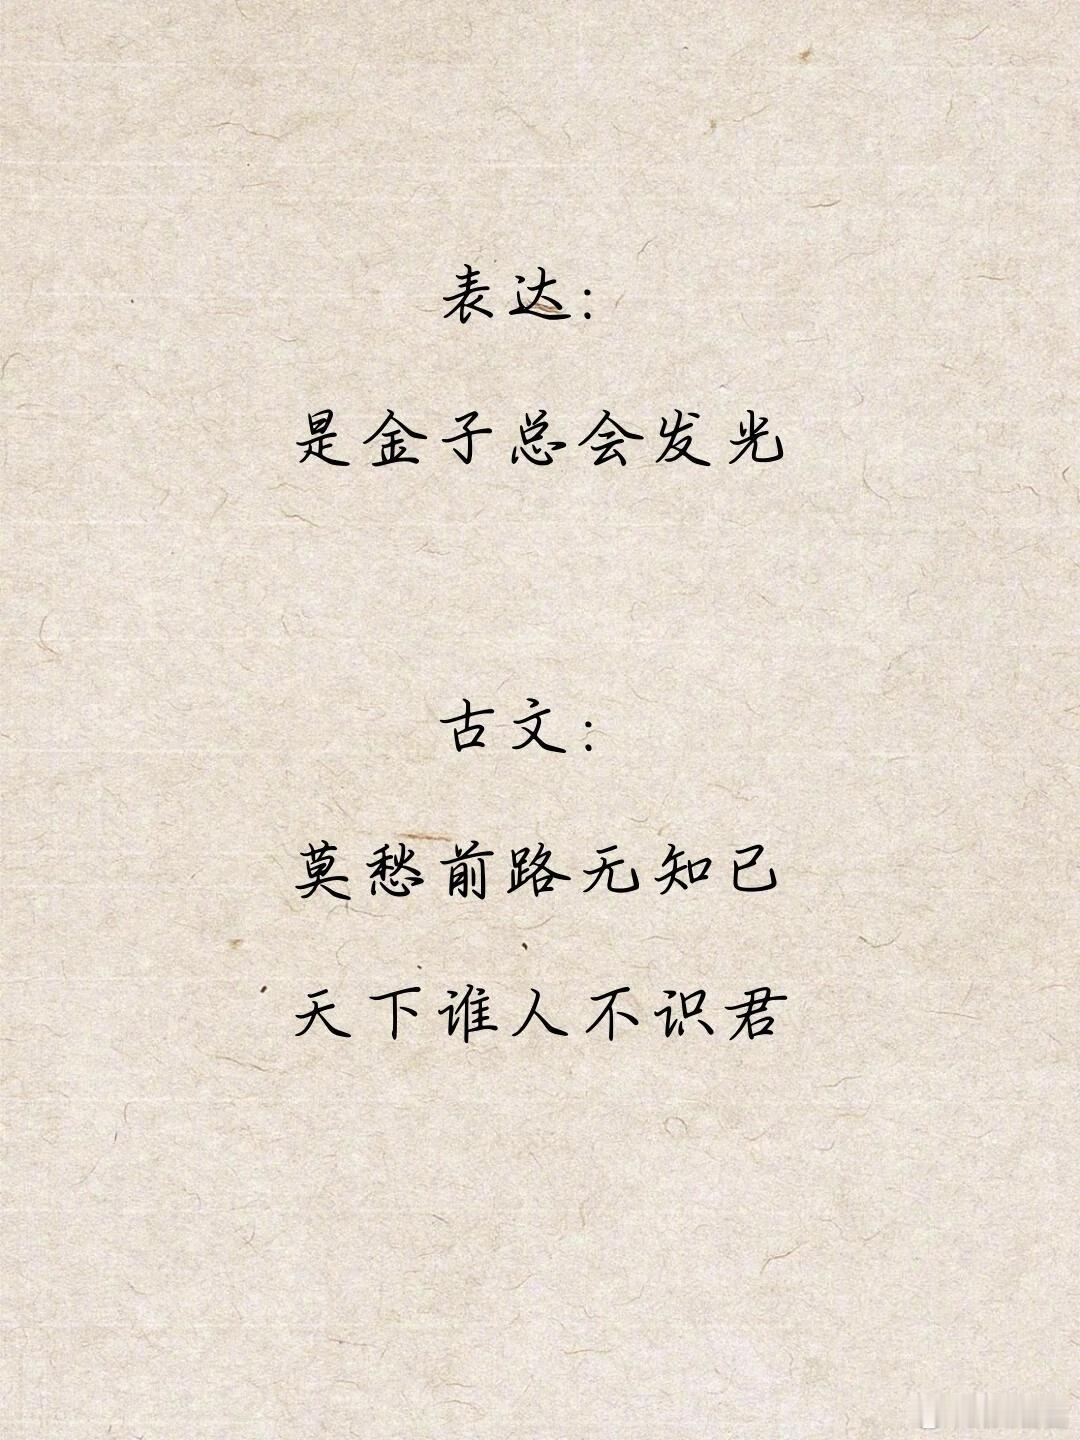 表达：
是金子总会发光
古文：
莫愁前路无知已
天下谁人不识君